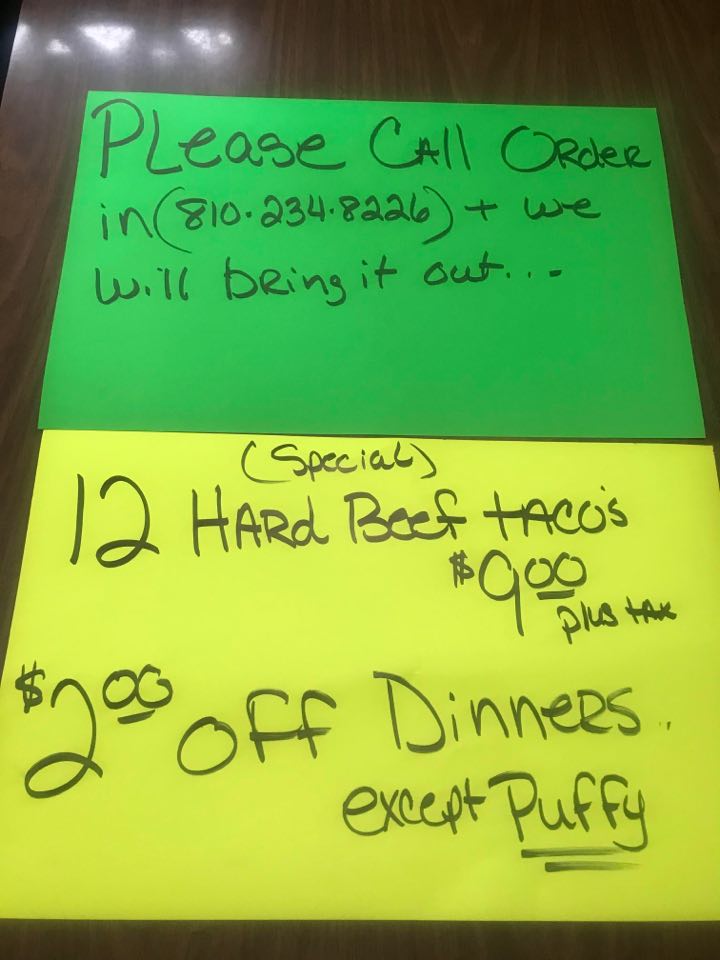 Please Call Order
in (810.234.8226) + we
will bring it out...
(Special)
12 Hard Beef taco's
$9.00
plus tax
$2.00 off Dinners.
except Puffy